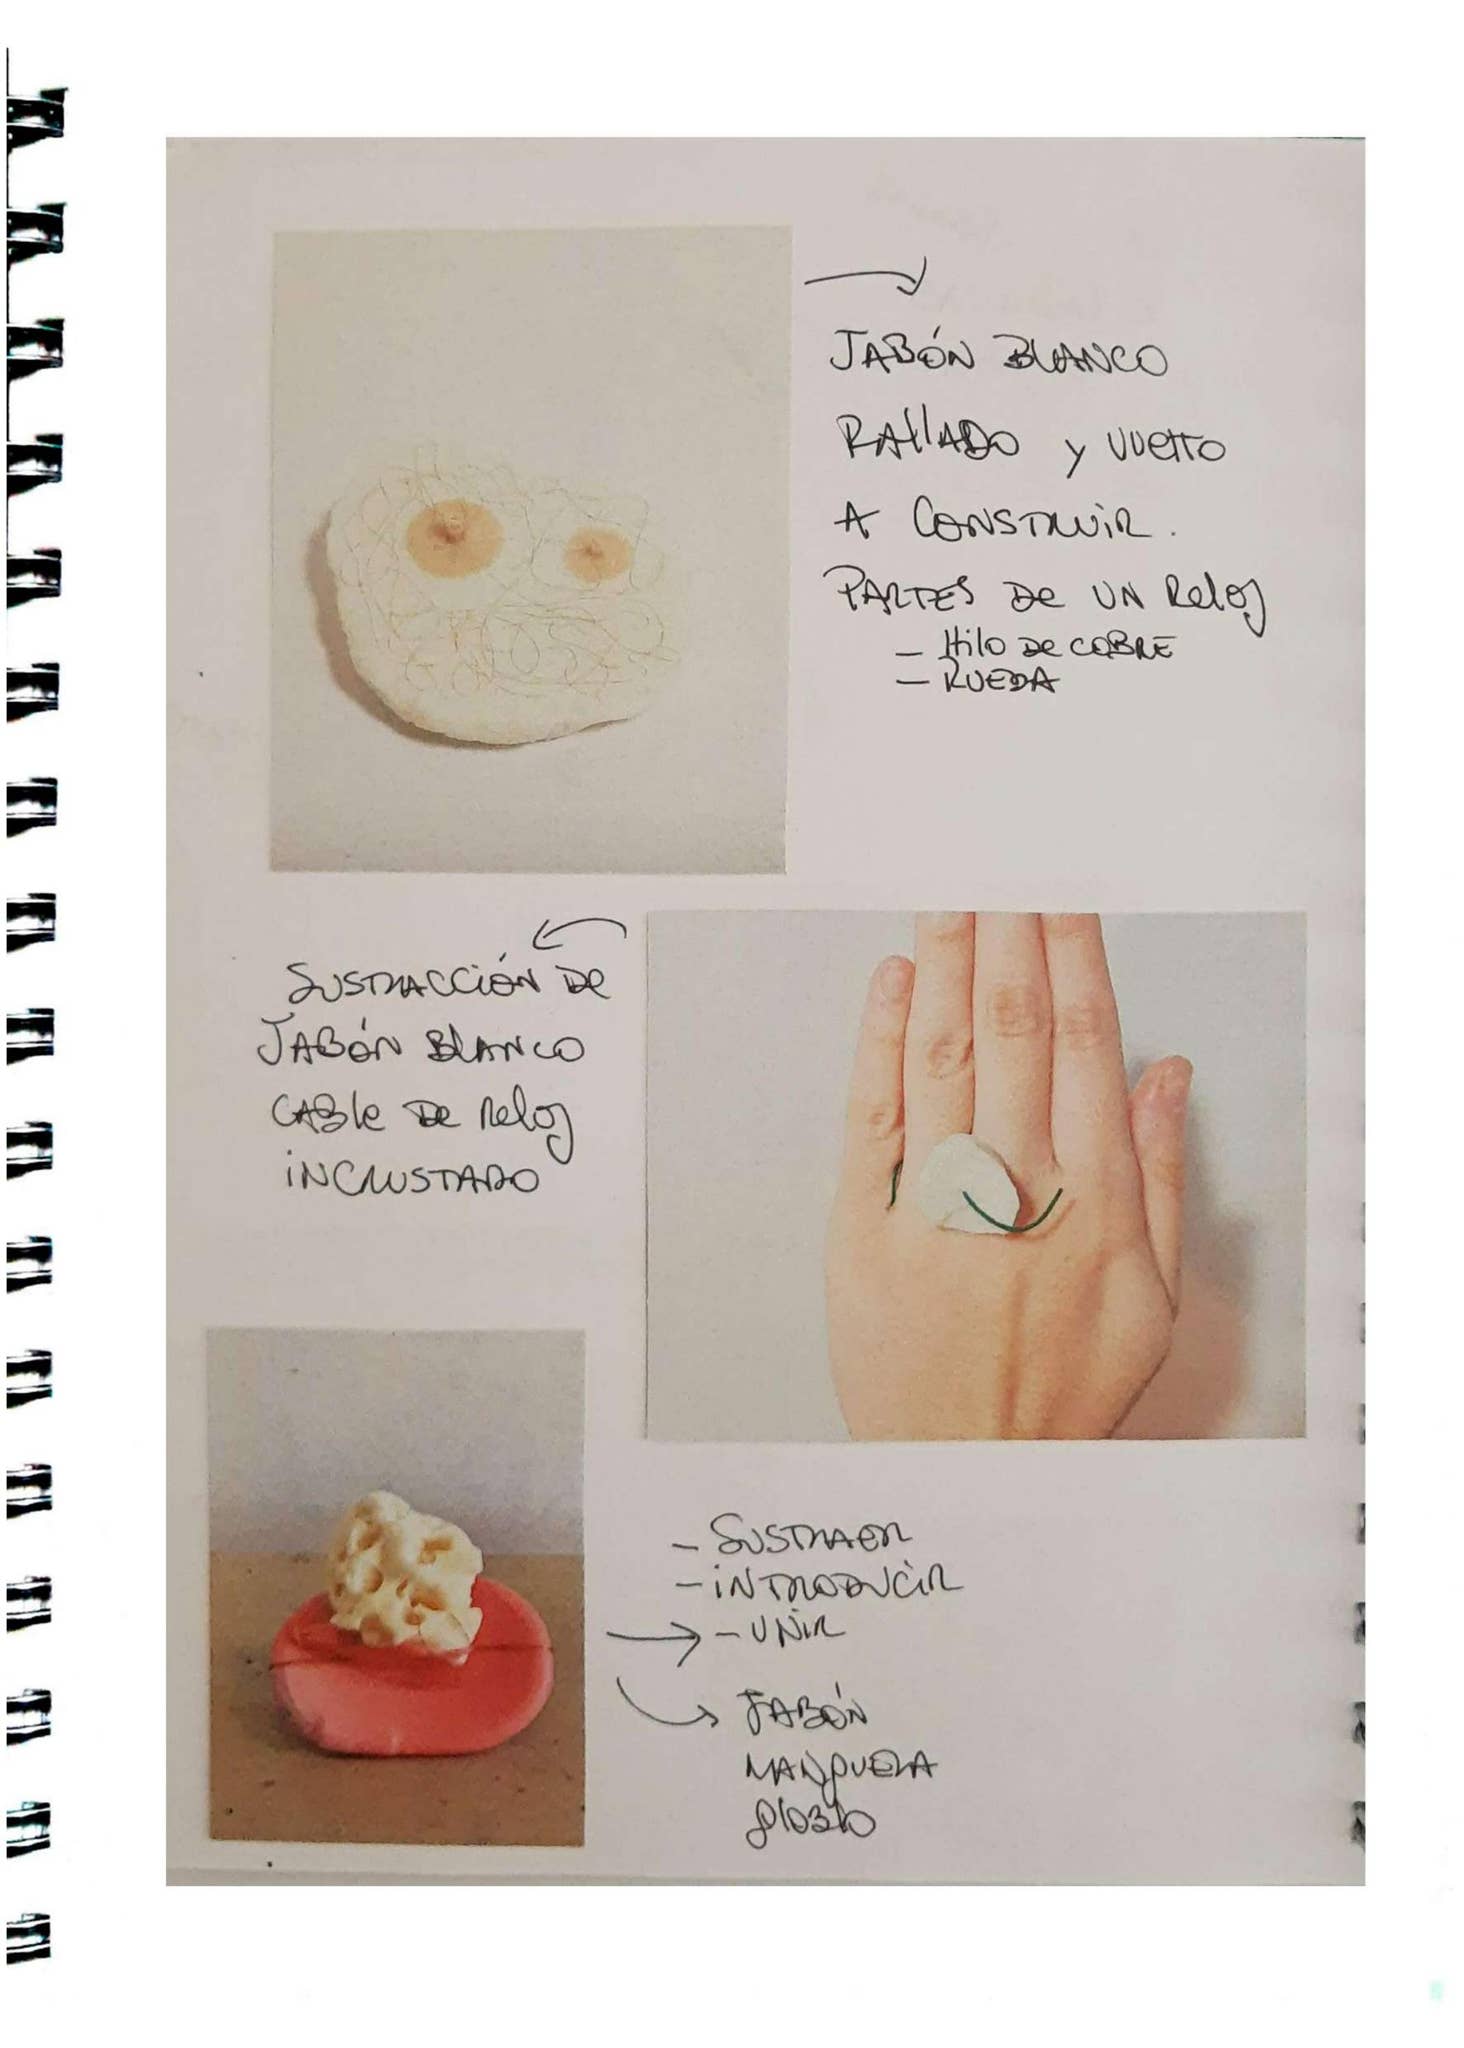 JABÓN BLANCO
RALLADO y VUELTO
A CONSTRUIR.
PARTES DE UN Reloj
- Hilo DE COBRE
- RUEDA
SUSTRACCIÓN DE
JABÓN BLANCO
CABle DE reloj
iNCRUSTADO
- SUSTRAER
- iNTRODUCIR
- UNIR
JABÓN
MANGUERA
globo